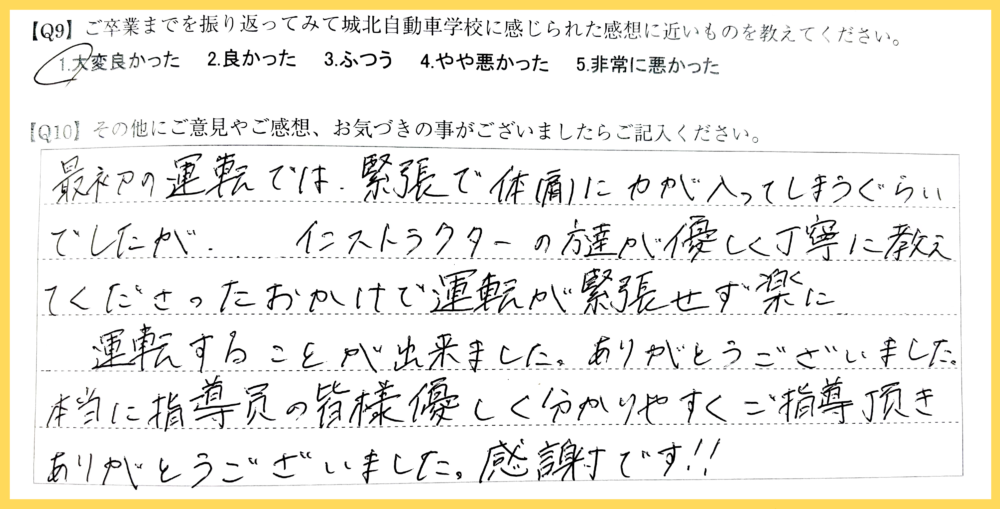 【Q9】ご卒業までを振り返ってみて城北自動車学校に感じられた感想に近いものを教えてください。
1.大変良かった 2.良かった 3.ふつう 4.やや悪かった 5.非常に悪かった
【Q10】その他にご意見やご感想、お気づきの事がございましたらご記入ください。
最初の運転では、緊張で体に力が入ってしまうぐらい
でしたが、インストラクターの方達が優しく丁寧に教え
てくださったおかげで運転が緊張せず楽に
運転することが出来ました。ありがとうございました。
本当に指導員の皆様優しく分かりやすくご指導頂き
ありがとうございました。感謝です!!